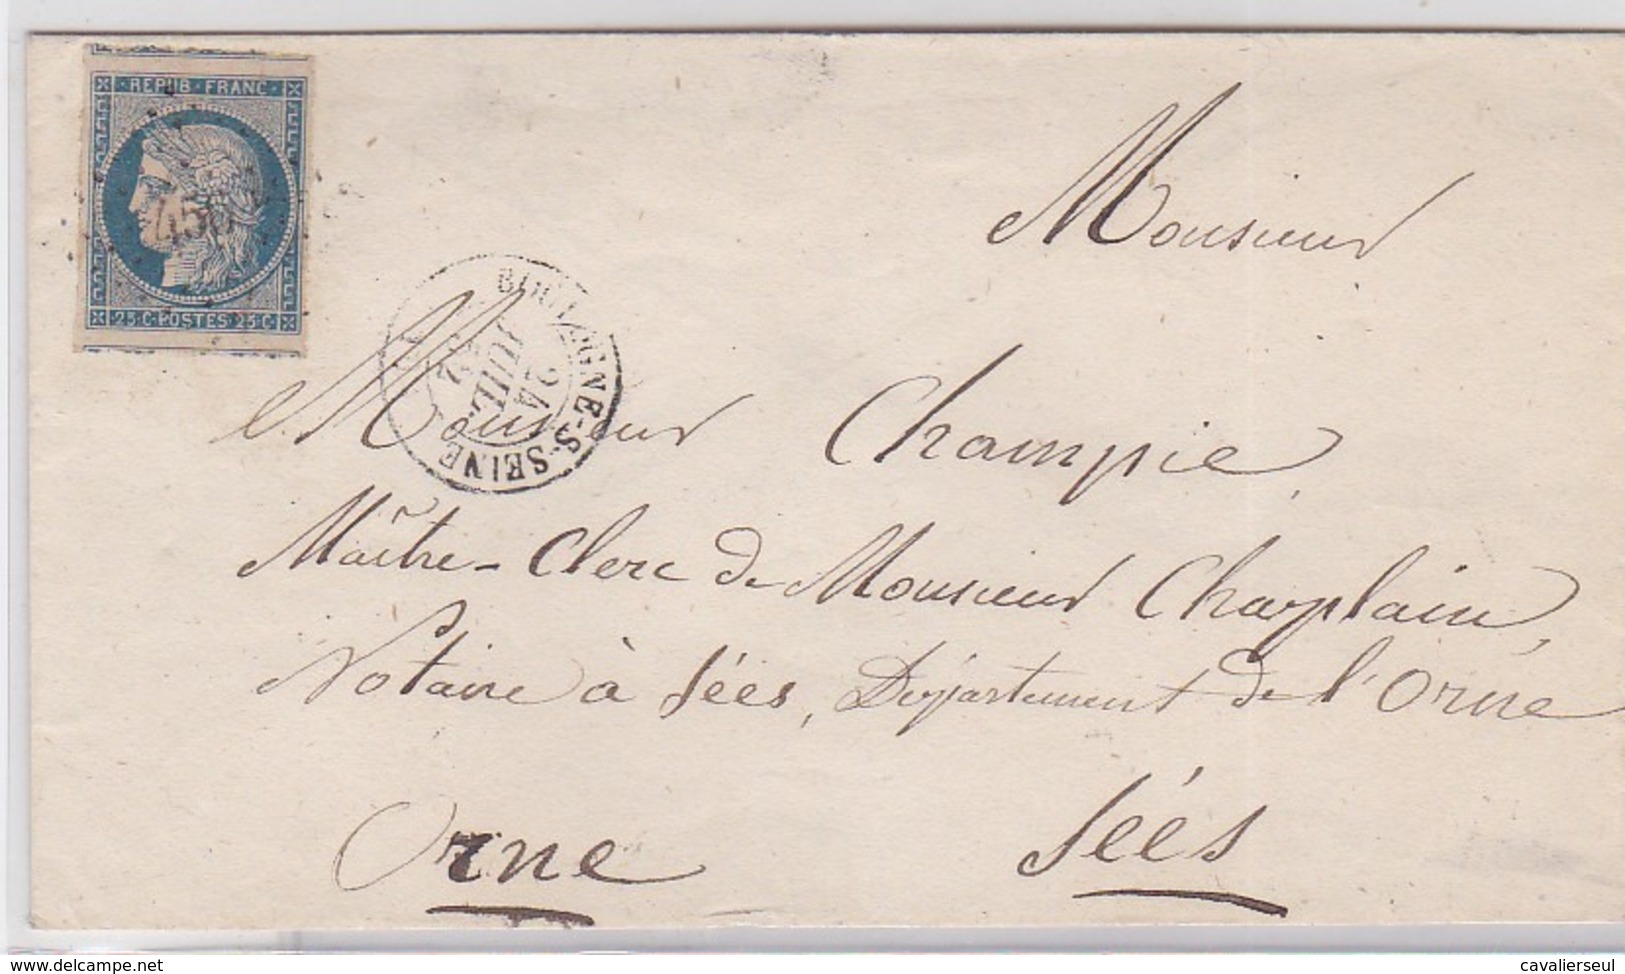 REPUB · FRANC
456
25·C·POSTES·25·C
BOULOGNE-S-SEINE
24
JUIL.
Monsieur
Monsieur Champie,
Maître-Clerc de Monsieur Charplain,
Notaire à Sées, Département de l'Orne
Sées
Orne
www.delcampe.net
cavalierseul